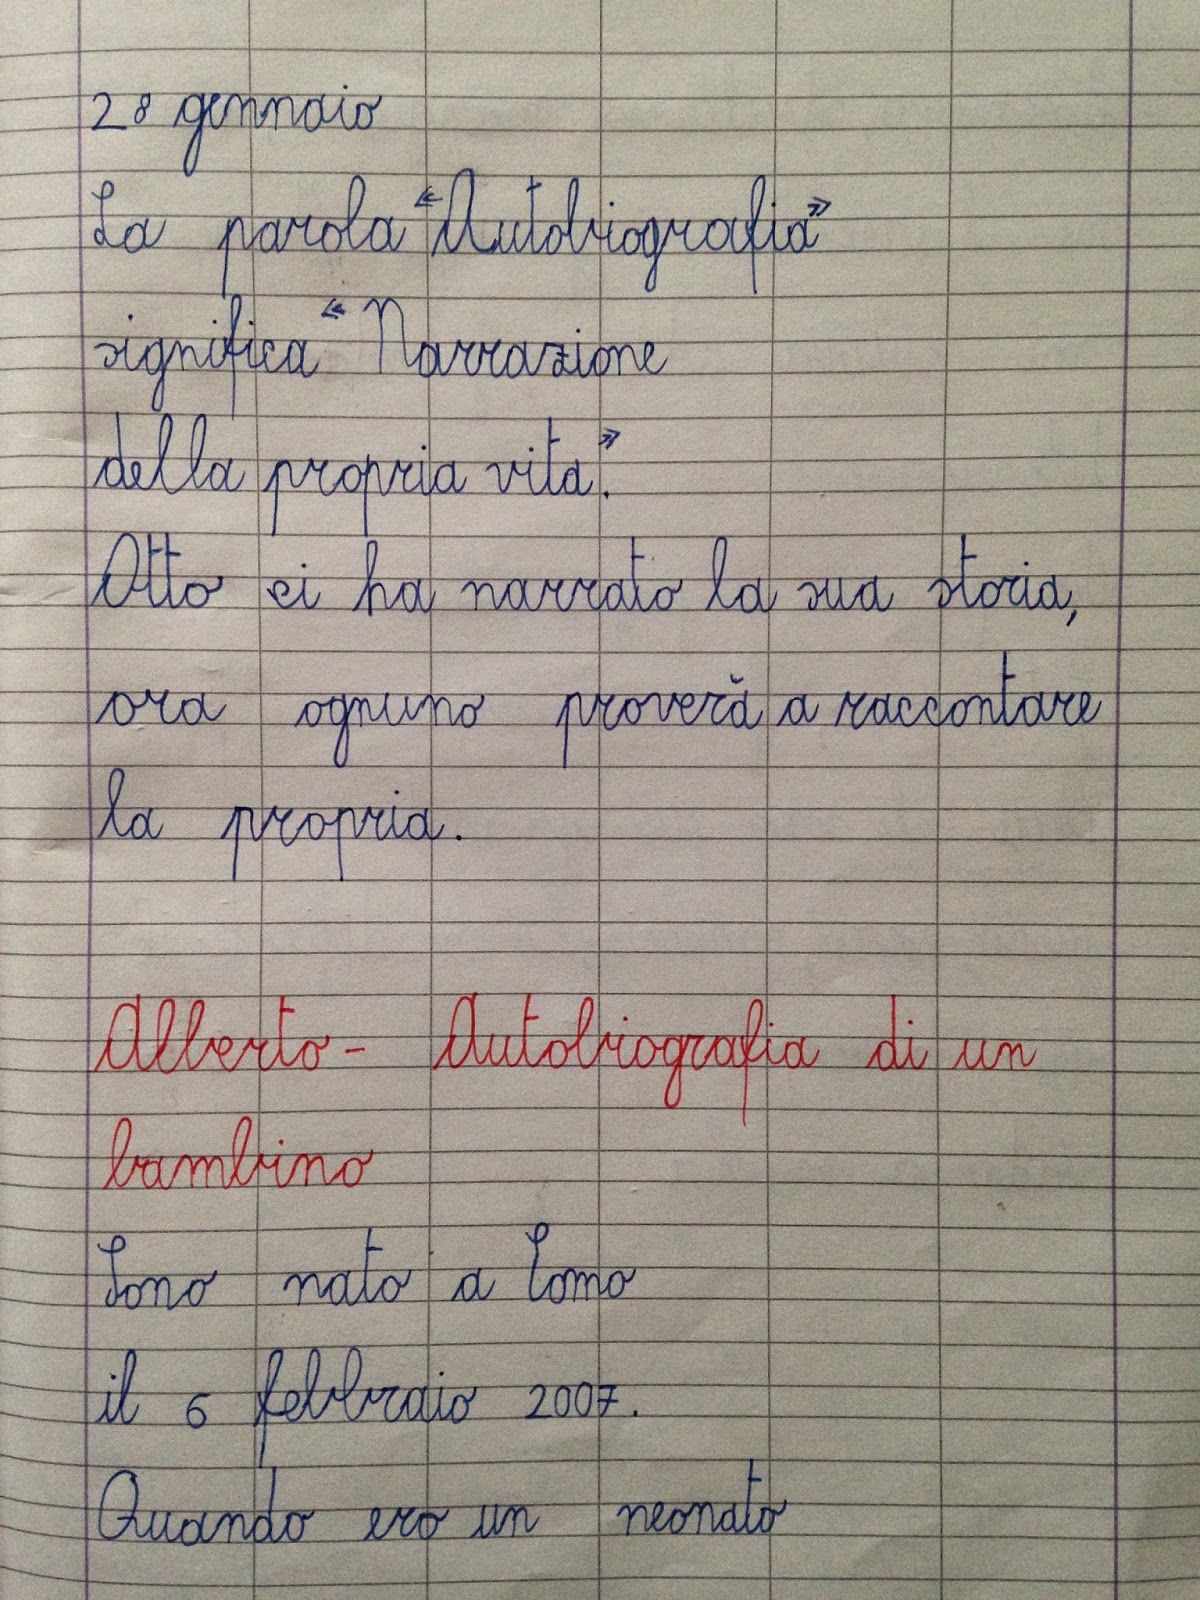 28 gennaio
La parola «Autobiografia»
significa «Narrazione
della propria vita».
Otto ci ha narrato la sua storia,
ora ognuno proverà a raccontare
la propria.
Alberto - Autobiografia di un
bambino
Sono nato a Como
il 6 febbraio 2007.
Quando ero un neonato